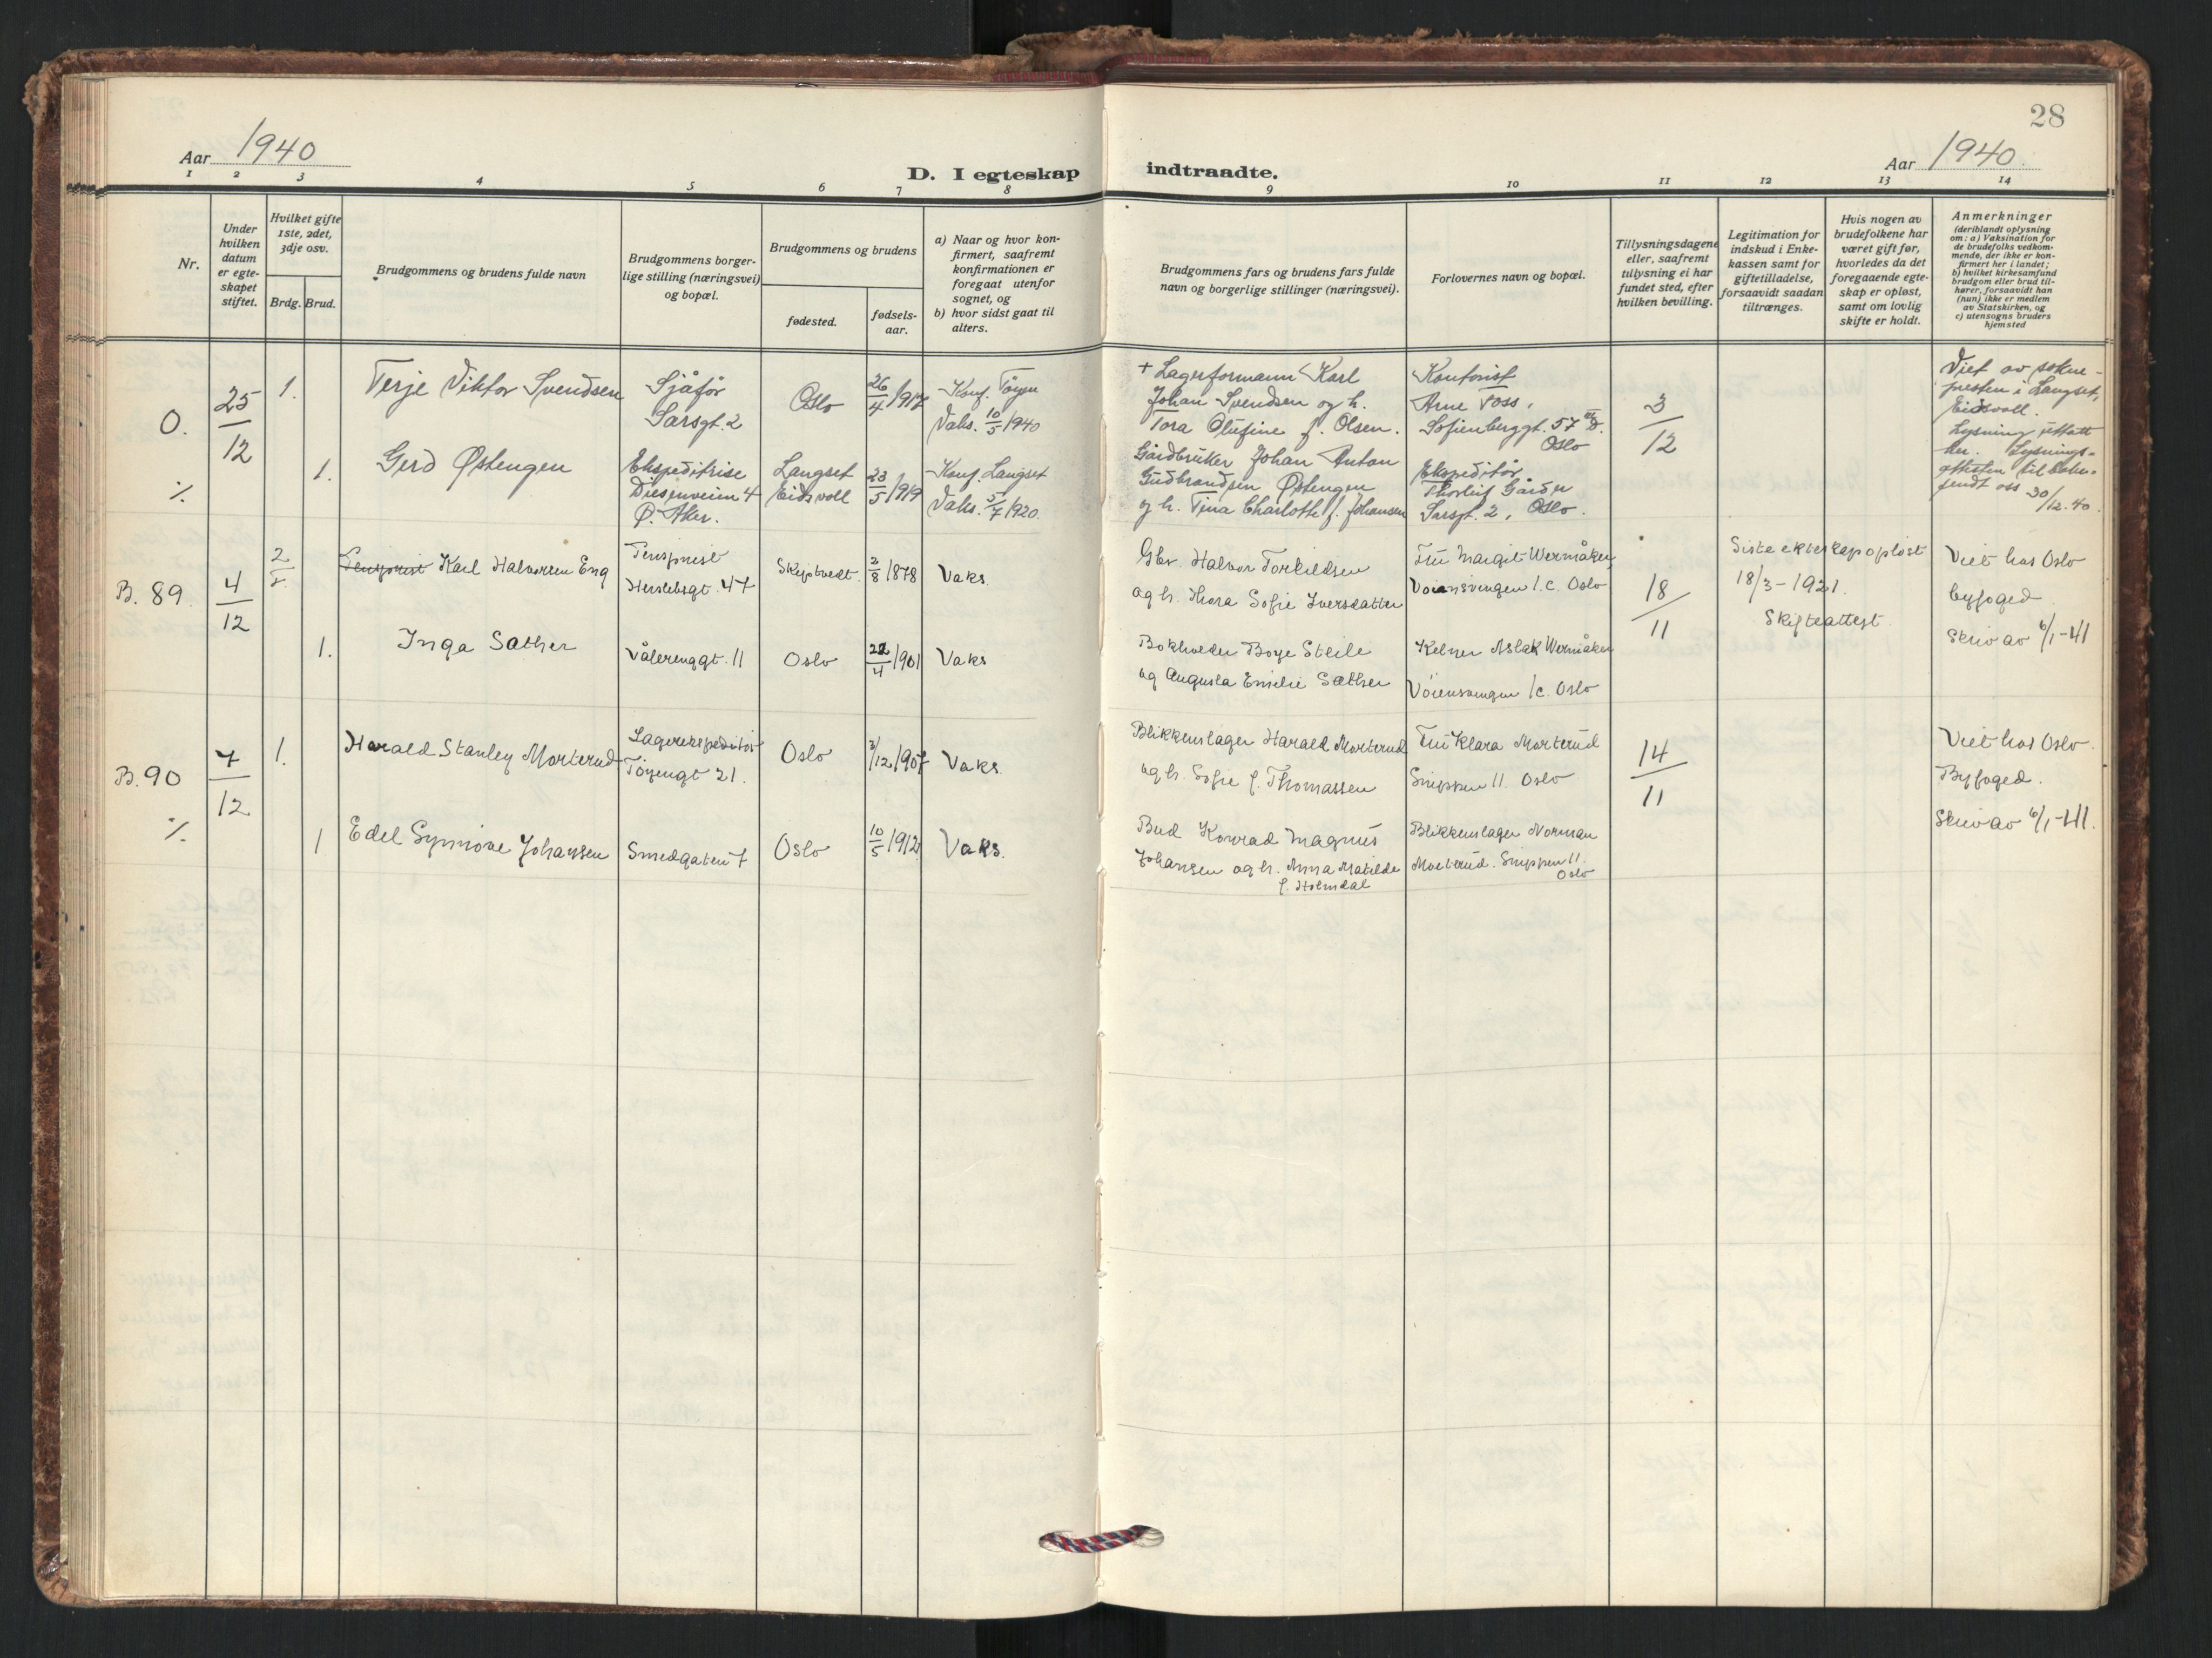 28
Aar 1940
D. I egteskap indtraadte.
Aar 1940.
1 2 3 4 5 6 7 8 9 10 11 12 13 14
Nr.
Under
hvilken
datum
er egte-
skapet
stiftet.
Hvilket gifte
1ste, 2det,
3dje osv.
Brdg. Brud.
Brudgommens og brudens fulde navn
Brudgommens borger-
lige stilling (næringsvei)
og bopæl.
Brudgommens og brudens
fødested.
fødsels-
aar.
a) Naar og hvor kon-
firmert, saafremt
konfirmationen er
foregaat utenfor
sognet, og
b) hvor sidst gaat til
alters.
Brudgommens fars og brudens fars fulde
navn og borgerlige stillinger (næringsvei).
Forlovernes navn og bopæl.
Tillysningsdagene
eller, saafremt
tillysning ei har
fundet sted, efter
hvilken bevilling.
Legitimation for
indskud i Enke-
kassen samt for
giftetilladelse,
forsaavidt saadan
tiltrænges.
Hvis nogen av
brudefolkene har
været gift før,
hvorledes da det
foregaaende egte-
skap er opløst,
samt om lovlig
skifte er holdt.
Anmerkninger
(deriblandt oplysning
om: a) Vaksination for
de brudefolks vedkom-
mende, der ikke er kon-
firmert her i landet;
b) hvilket kirkesamfund
brudgom eller brud til-
hører, forsaavidt han
(hun) ikke er medlem
av Statskirken, og
c) utensogns bruders
hjemsted
0.
%
25/12
1.
Terje Viktor Svendsen
Sjåfør
Sarsgt. 2
Oslo
26/4 1917
Konf. Tøyen
Vaks. 10/5 1940
+ Lagerformann Karl
Johan Svendsen og h.
Tora Olufine f. Olsen.
Kontorist
Arne Voss,
Sofienberggt. 57 III d.
Oslo
3/12
Viet av sokne-
presten i Langset,
Eidsvoll.
Lysning uttatt
her. Lysnings-
attesten tilbake-
sendt oss 30/12.40.
1.
Gerd Østengen
Ekspeditrise
Disenveien 4
Ø. Aker.
Langset
Eidsvoll
23/5 1919
Konf. Langset
Vaks. 5/7 1920.
Gårdbruker Johan Anton
Gudbrandsen Østengen
og h. Tina Charlotte f. Johansen
Ekspeditør
Thorleif Gårder
Sarsgt. 2, Oslo.
B. 89.
4/12
2
Pensjonist Karl Halvorsen Eng
Pensjonist
Herslebsgt. 47
Skiptvedt.
2/8 1878
Vaks.
Gbr. Halvor Torkildsen
og h. Thora Sofie Iversdatter
Fru Margit Wermåker
Vøiensvingen 1.c. Oslo
18/11
Siste ekteskap opløst
18/3-1921.
Skifteattest.
Viet hos Oslo
byfoged.
Skriv av 6/1-41
1.
Inga Sæther
Vålerenggt. 11
Oslo
22/4 1901
Vaks
Bokholder Boye Steile
og Augusta Emelie Sæther
Kelner Aslak Wermåker
Vøiensvingen 1c. Oslo
B. 90
%
7/12
1.
Harald Stanley Morterud
Lagerekspeditør
Tøyengt 21.
Oslo
3/12 1907
Vaks.
Blikkenslager Harald Morterud
og h. Sofie f. Thomassen
Fru Klara Morterud
Snippen 11. Oslo
14/11
Viet hos Oslo.
Byfoged.
Skriv av 6/1-41.
1
Edel Synnøve Johansen
Smedgaten 7
Oslo
10/5 1912
Vaks.
Bud Konrad Magnus
Johansen og h. Anna Matilde
f. Holmdal
Blikkenslager Norman
Morterud. Snippen 11.
Oslo